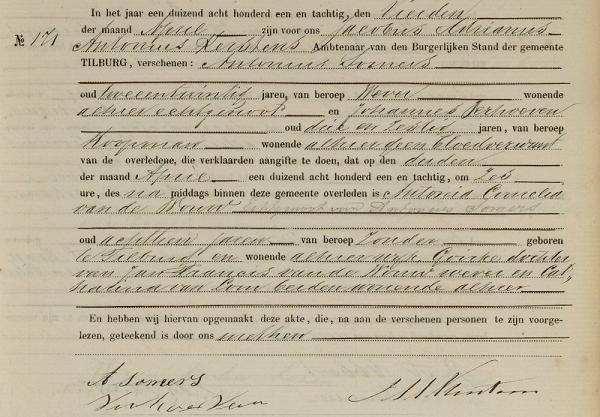 In het jaar een duizend acht honderd een en tachtig, den vierden
der maand April zijn voor ons Jacobus Adrianus
№ 171
Antonius Kerstens Ambtenaar van den Burgerlijken Stand der gemeente
TILBURG, verschenen: Antonius Somers
oud tweeentwintig jaren, van beroep Wever wonende
alhier echtgenoot en Johannes Verhoeven
oud drie en zestig jaren, van beroep
Koopman wonende alhier geen bloedverwant
van de overledene, die verklaarden aangifte te doen, dat op den derden
der maand April een duizend acht honderd een en tachtig, om zes
ure, des na middags binnen deze gemeente overleden is Antonia Cornelia
van de Wouw echtgenoot van Antonius Somers
oud achttien jaren van beroep zonder geboren
te Tilburg en wonende alhier wijk Goirke dochter
van Jan Francis van de Wouw wever en Cat,
halina van Dom beiden wonende alhier
En hebben wij hiervan opgemaakt deze akte, die, na aan de verschenen personen te zijn voorge-
lezen, geteekend is door ons met hen
A Somers